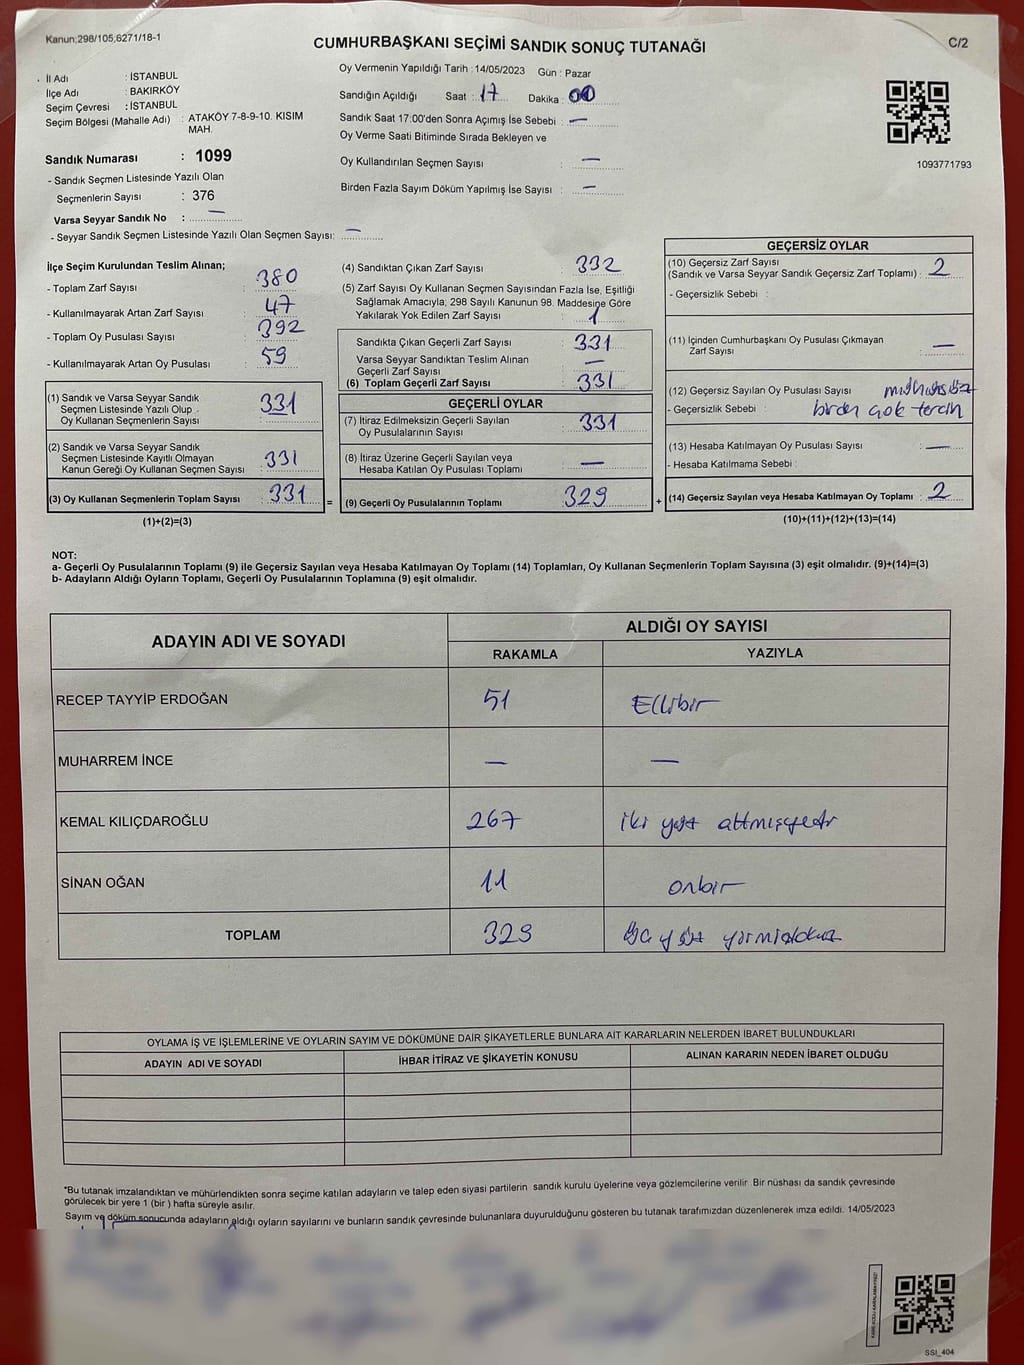 Kanun;298/105,6271/18-1
CUMHURBAŞKANI SEÇİMİ SANDIK SONUÇ TUTANAĞI
C/2
İl Adı : İSTANBUL
İlçe Adı : BAKIRKÖY
Seçim Çevresi : İSTANBUL
Seçim Bölgesi (Mahalle Adı) : ATAKÖY 7-8-9-10. KISIM
MAH.
Sandık Numarası : 1099
- Sandık Seçmen Listesinde Yazılı Olan
Seçmenlerin Sayısı : 376
Varsa Seyyar Sandık No : —
- Seyyar Sandık Seçmen Listesinde Yazılı Olan Seçmen Sayısı: —
Oy Vermenin Yapıldığı Tarih : 14/05/2023 Gün : Pazar
Sandığın Açıldığı Saat : 17 Dakika : 00
Sandık Saat 17:00'den Sonra Açımış İse Sebebi : —
Oy Verme Saati Bitiminde Sırada Bekleyen ve
Oy Kullandırılan Seçmen Sayısı : —
Birden Fazla Sayım Döküm Yapılmış İse Sayısı : —
1093771793
İlçe Seçim Kurulundan Teslim Alınan;
- Toplam Zarf Sayısı : 380
- Kullanılmayarak Artan Zarf Sayısı : 47
- Toplam Oy Pusulası Sayısı : 392
- Kullanılmayarak Artan Oy Pusulası : 59
(1) Sandık ve Varsa Seyyar Sandık
Seçmen Listesinde Yazılı Olup
Oy Kullanan Seçmenlerin Sayısı : 331
(2) Sandık ve Varsa Seyyar Sandık
Seçmen Listesinde Kayıtlı Olmayan
Kanun Gereği Oy Kullanan Seçmen Sayısı : 331
(3) Oy Kullanan Seçmenlerin Toplam Sayısı : 331 =
(1)+(2)=(3)
(4) Sandıktan Çıkan Zarf Sayısı : 332
(5) Zarf Sayısı Oy Kullanan Seçmen Sayısından Fazla İse, Eşitliği
Sağlamak Amacıyla, 298 Sayılı Kanunun 98. Maddesine Göre
Yakılarak Yok Edilen Zarf Sayısı : 1
Sandıkta Çıkan Geçerli Zarf Sayısı : 331
Varsa Seyyar Sandıktan Teslim Alınan
Geçerli Zarf Sayısı : —
(6) Toplam Geçerli Zarf Sayısı : 331
GEÇERLİ OYLAR
(7) İtiraz Edilmeksizin Geçerli Sayılan
Oy Pusulalarının Sayısı : 331
(8) İtiraz Üzerine Geçerli Sayılan veya
Hesaba Katılan Oy Pusulası Toplamı : —
(9) Geçerli Oy Pusulalarının Toplamı : 329 +
GEÇERSİZ OYLAR
(10) Geçersiz Zarf Sayısı
(Sandık ve Varsa Seyyar Sandık Geçersiz Zarf Toplamı) : 2
- Geçersizlik Sebebi :
(11) İçinden Cumhurbaşkanı Oy Pusulası Çıkmayan
Zarf Sayısı : —
(12) Geçersiz Sayılan Oy Pusulası Sayısı
- Geçersizlik Sebebi : birden çok tercih
(13) Hesaba Katılmayan Oy Pusulası Sayısı : —
- Hesaba Katılmama Sebebi :
(14) Geçersiz Sayılan veya Hesaba Katılmayan Oy Toplamı : 2
(10)+(11)+(12)+(13)=(14)
NOT:
a- Geçerli Oy Pusulalarının Toplamı (9) ile Geçersiz Sayılan veya Hesaba Katılmayan Oy Toplamı (14) Toplamları, Oy Kullanan Seçmenlerin Toplam Sayısına (3) eşit olmalıdır. (9)+(14)=(3)
b- Adayların Aldığı Oyların Toplamı, Geçerli Oy Pusulalarının Toplamına (9) eşit olmalıdır.
ADAYIN ADI VE SOYADI
ALDIĞI OY SAYISI
RAKAMLA YAZIYLA
RECEP TAYYİP ERDOĞAN 51 Ellibir
MUHARREM İNCE — —
KEMAL KILIÇDAROĞLU 267 iki yüz altmışyedi
SİNAN OĞAN 11 onbir
TOPLAM 329 üç yüz yirmidokuz
OYLAMA İŞ VE İŞLEMLERİNE VE OYLARIN SAYIM VE DÖKÜMÜNE DAİR ŞİKAYETLERLE BUNLARA AİT KARARLARIN NELERDEN İBARET BULUNDUKLARI
ADAYIN ADI VE SOYADI İHBAR İTİRAZ VE ŞİKAYETİN KONUSU ALINAN KARARIN NEDEN İBARET OLDUĞU
*Bu tutanak imzalandıktan ve mühürlendikten sonra seçime katılan adayların ve talep eden siyasi partilerin sandık kurulu üyelerine veya gözlemcilerine verilir. Bir nüshası da sandık çevresinde
görülecek bir yere 1 (bir ) hafta süreyle asılır.
Sayım ve döküm sonucunda adayların aldığı oyların sayılarını ve bunların sandık çevresinde bulunanlara duyurulduğunu gösteren bu tutanak tarafımızdan düzenlenerek imza edildi. 14/05/2023
SSI_404